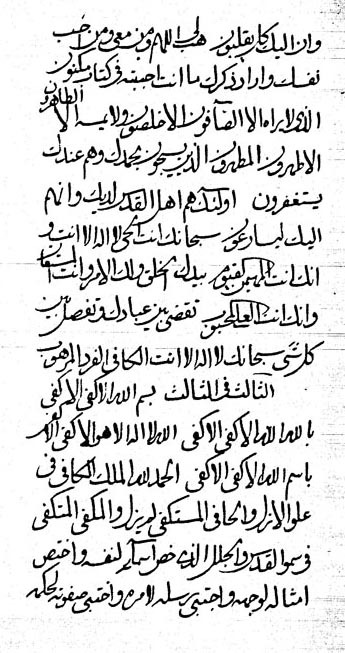 وان اليك كل يقلبون هب لي اللهم ومن معي ومن احب
نفسك واراد ذكرك ما انت احببته في كتاب مكنون
الذي لا يراه الا الصافون الاخلصون ولا يمسه الا الطاهرون
الاطهرون المطهرون الذين يسبحون بحمدك وهم عندك
يستغفرون اولئك هم اهل القدس لديك وانهم
اليك ليسارعون سبحانك انت الحي لا اله الا انت و
انك انت المهيمن القيوم بيدك الخلق ولك الامر وانت
وانك انت العالي المحبوب تقضي بين عبادك وتفصل بين
كل شيء سبحانك لا اله الا انت الكافي الفرد المرهوب
الثالث في الثالث بسم الله الاكفي الاكفي
بالله الله الاكفي الاكفي الله لا اله الا هو الاكفي الاكفي
باسم الله الاكفي الاكفي الحمد لله الملك الكافي في
علو الازل والكافي المستكفي لم يزل والمكفي المتكفي
في سمو القدس والجلل الذي خص اسمائه لنفسه واختص
امثاله لوجهه واجتبى رسله لامره واجتبى صفوته لحكمه